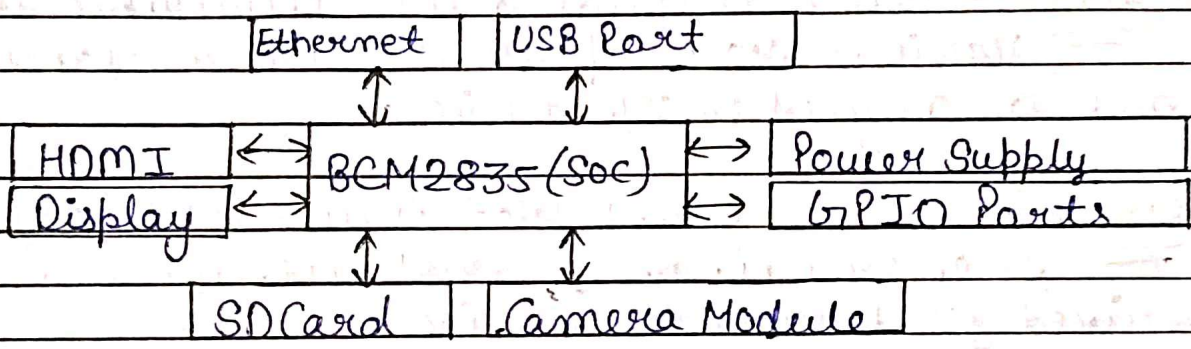 Ethernet
USB Port
HDMI
BCM2835 (SoC)
Power Supply
Display
GPIO Ports
SD Card
Camera Module